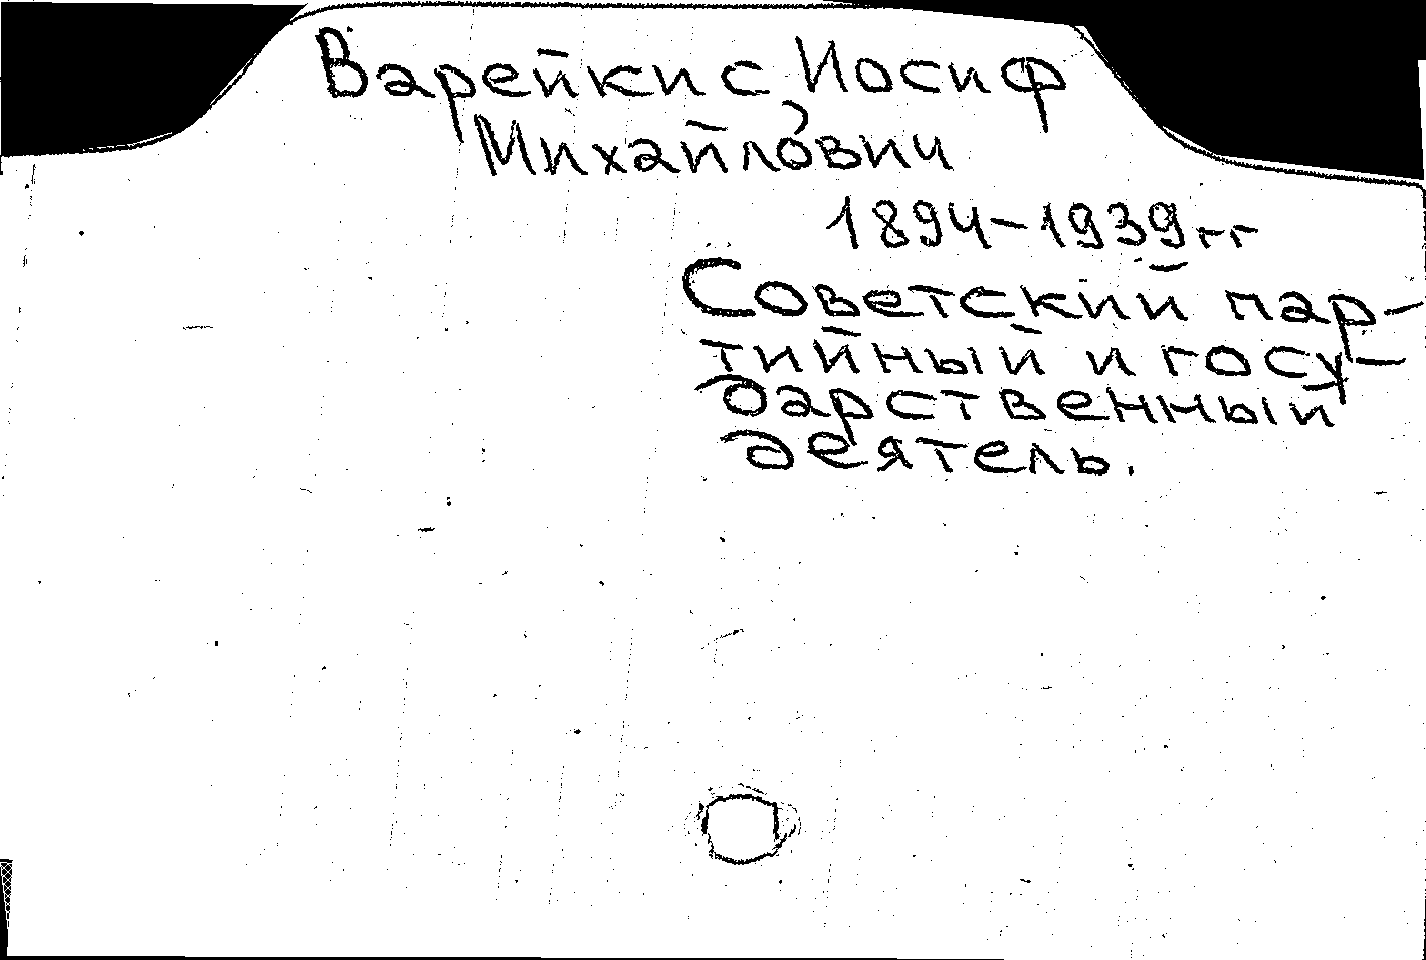 Варейкис Иосиф
Михайлович
1894-1939гг
Советский пар-
тийный и госу-
дарственный
деятель.